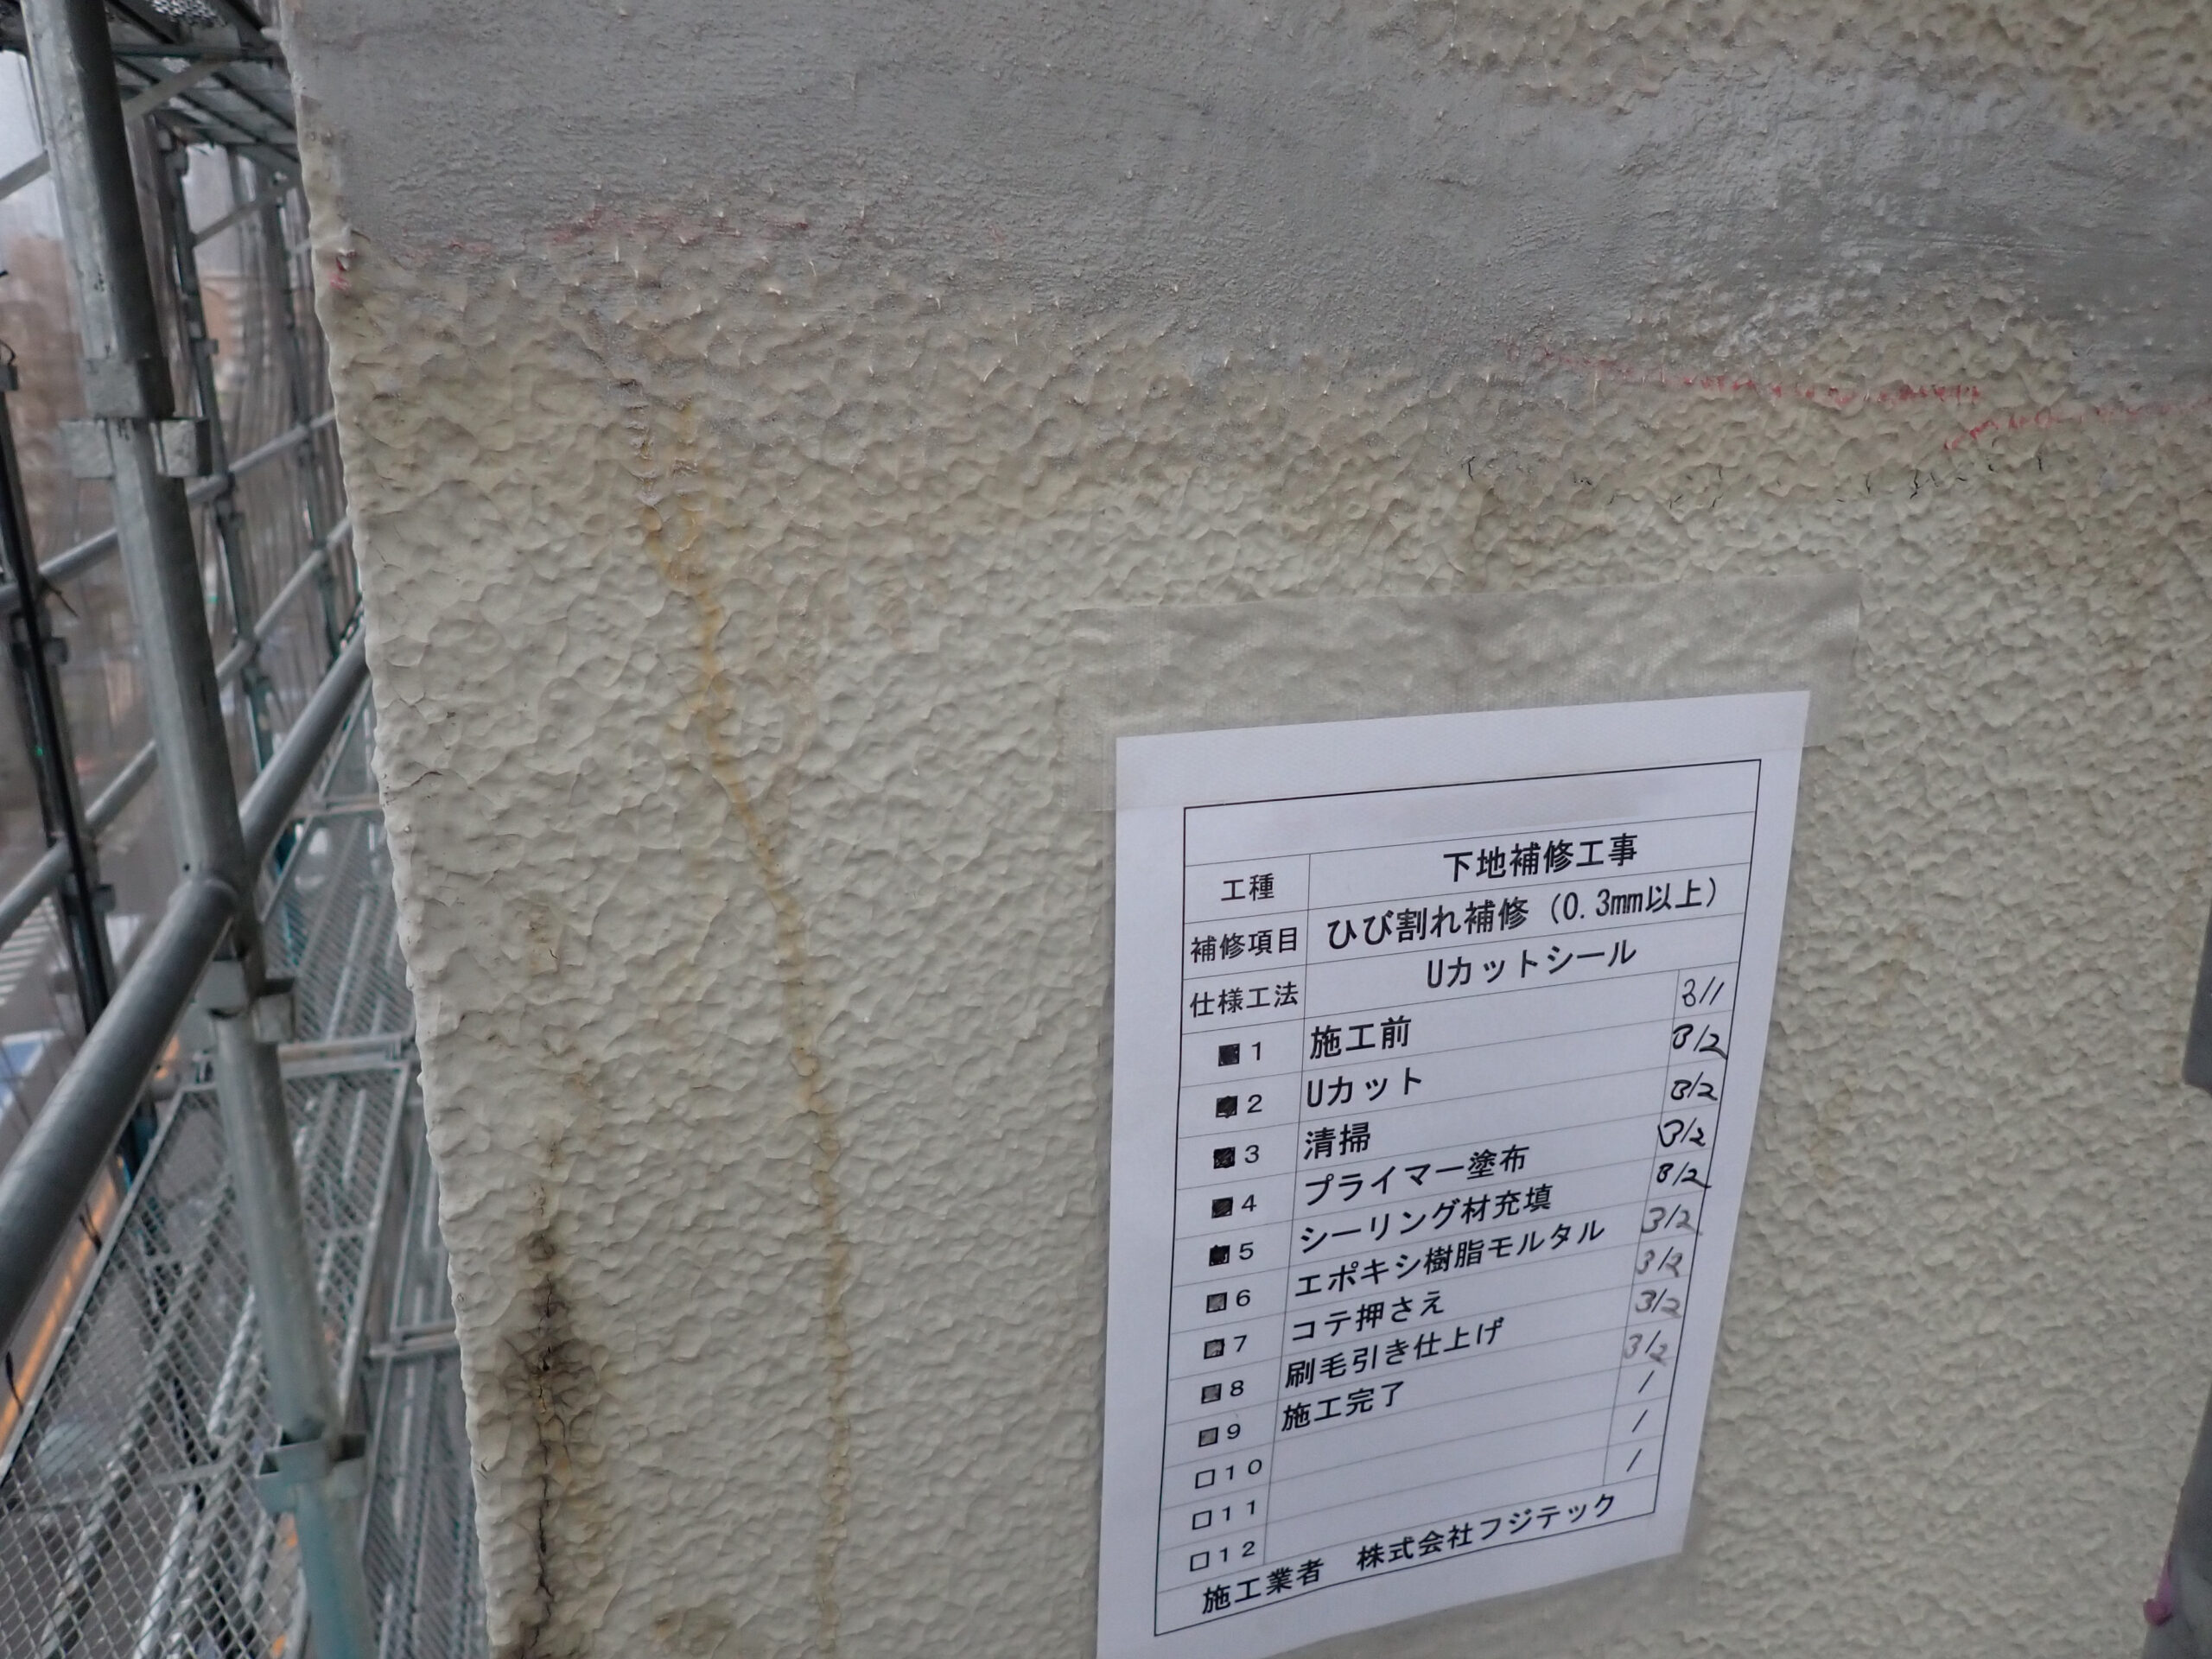 工種 下地補修工事
補修項目 ひび割れ補修（0.3mm以上）
仕様工法 Uカットシール
■1 施工前 3/1
■2 Uカット 3/2
■3 清掃 3/2
■4 プライマー塗布 3/2
■5 シーリング材充填 3/2
■6 エポキシ樹脂モルタル 3/2
■7 コテ押さえ 3/2
■8 刷毛引き仕上げ 3/2
■9 施工完了 3/2
□10 /
□11 /
□12 /
施工業者 株式会社フジテック